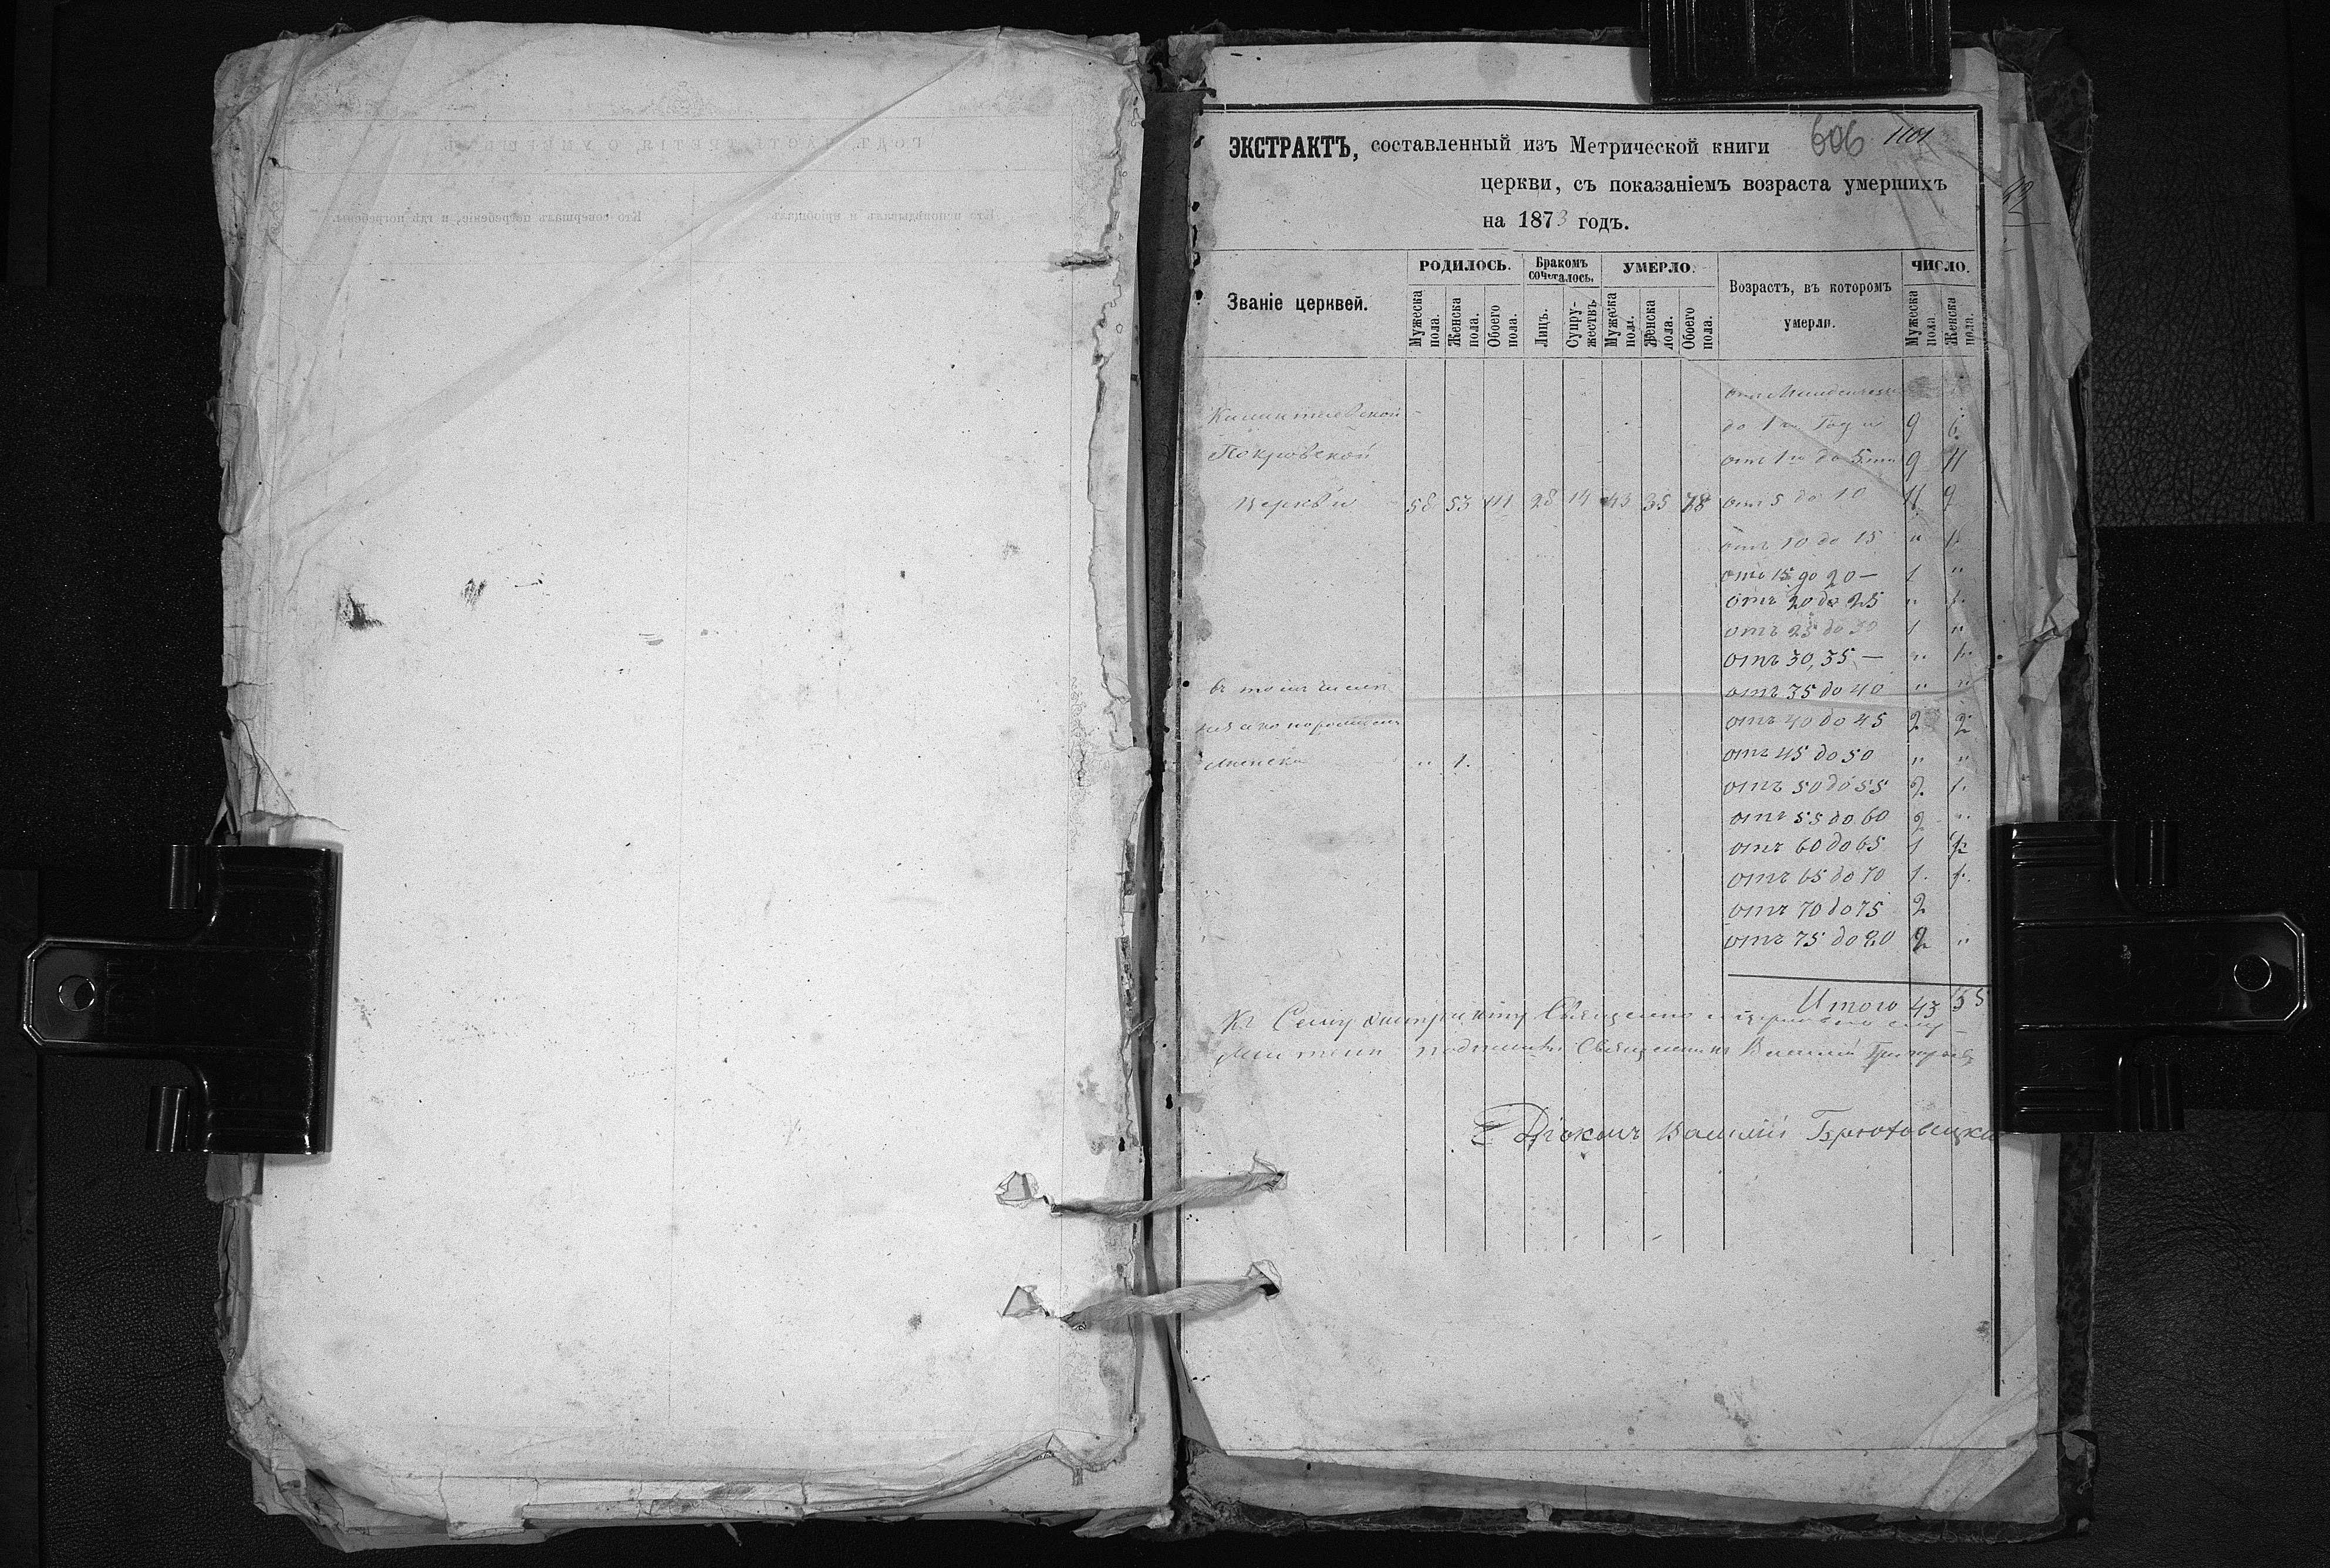 606 1101
ЭКСТРАКТЪ, составленный изъ Метрической книги
церкви, съ показаніемъ возраста умершихъ
на 1873 годъ.
Званіе церквей.
РОДИЛОСЬ.
Мужеска пола.
Женска пола.
Обоего пола.
Бракомъ сочеталось.
Лицъ.
Супружествъ
УМЕРЛО.
Мужеска пола.
Женска пола.
Обоего пола.
Возрастъ, въ которомъ умерли.
ЧИСЛО.
Мужеска пола
Женска пола.
до 1го Года 9 6
Покровской отъ 1го до 5ти 9 11
Церкви 58 53 111 28 14 43 35 78 отъ 5 до 10 11 9
отъ 10 до 15 " 1.
отъ 15 до 20 — 1 "
отъ 20 до 25 " 1.
отъ 25 до 30 1 "
отъ 30, 35 — " 1.
въ томъ числѣ отъ 35 до 40 " "
отъ 40 до 45 2 2
" 1. отъ 45 до 50 " "
отъ 50 до 55 2. 1.
отъ 55 до 60 2 "
отъ 60 до 65 1
отъ 65 до 70 1. 1.
отъ 70 до 75 2
отъ 75 до 80 2 "
Итого 43 35
Къ Сему экстракту Священно и церковно слу-
жители подписались Священникъ Василий
Дьяконъ Василий